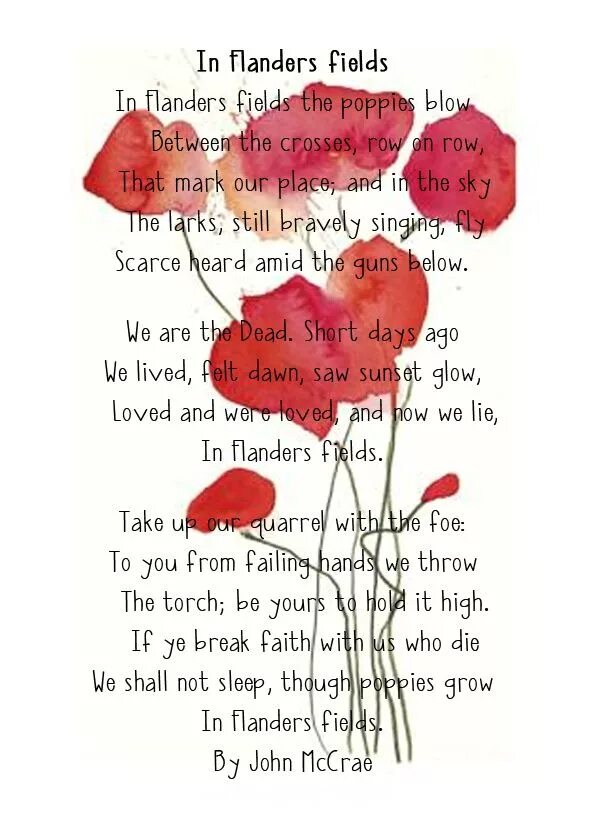 In Flanders fields
In Flanders fields the poppies blow
Between the crosses, row on row,
That mark our place; and in the sky
The larks, still bravely singing, fly
Scarce heard amid the guns below.
We are the Dead. Short days ago
We lived, felt dawn, saw sunset glow,
Loved and were loved, and now we lie,
In Flanders fields.
Take up our quarrel with the foe:
To you from failing hands we throw
The torch; be yours to hold it high.
If ye break faith with us who die
We shall not sleep, though poppies grow
In Flanders fields.
By John McCrae